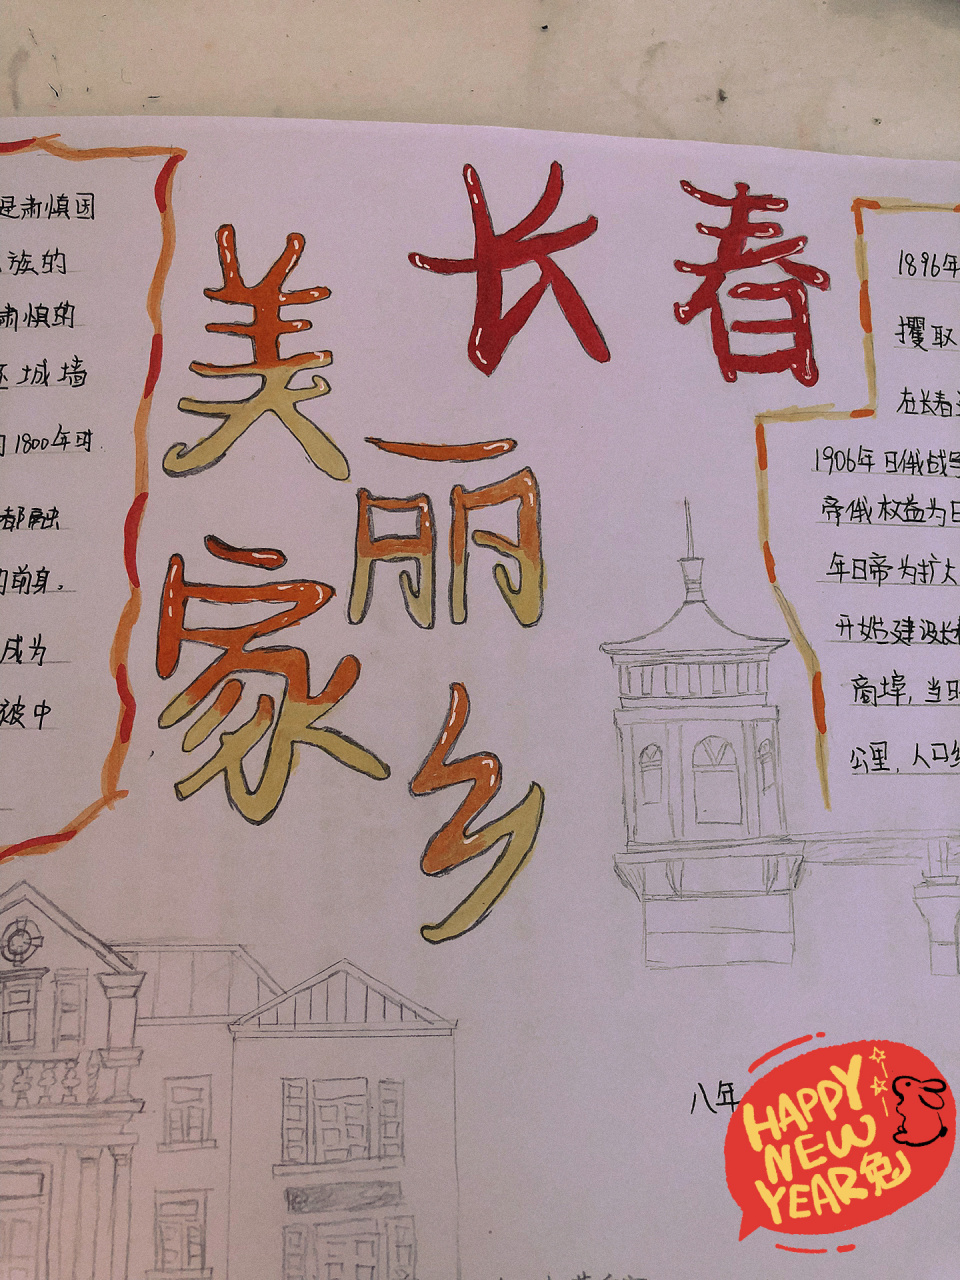 长春
美丽家乡
是肃慎因
族的
肃慎的
城墙
1800年时.
都融
的前身。
成为
被中
1896年
攫取
在长春
1906年日俄战争
帝俄权益为日
年日帝为扩大
开始建设长
商埠,当时
公里,人口约
八年
HAPPY
NEW
YEAR兔